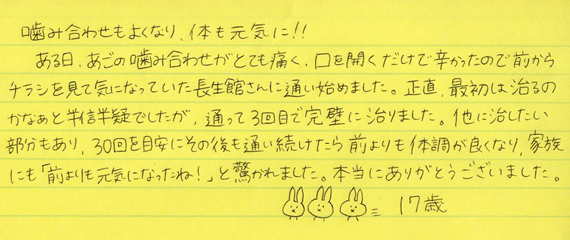 噛み合わせもよくなり、体も元気に!!
ある日、あごの噛み合わせがとても痛く、口を開くだけで辛かったので前から
チラシを見て気になっていた長生館さんに通い始めました。正直、最初は治るの
かなぁと半信半疑でしたが、通って3回目で完璧に治りました。他に治したい
部分もあり、30回を目安にその後も通い続けたら前よりも体調が良くなり、家族
にも「前よりも元気になったね!」と驚かれました。本当にありがとうございました。
17歳